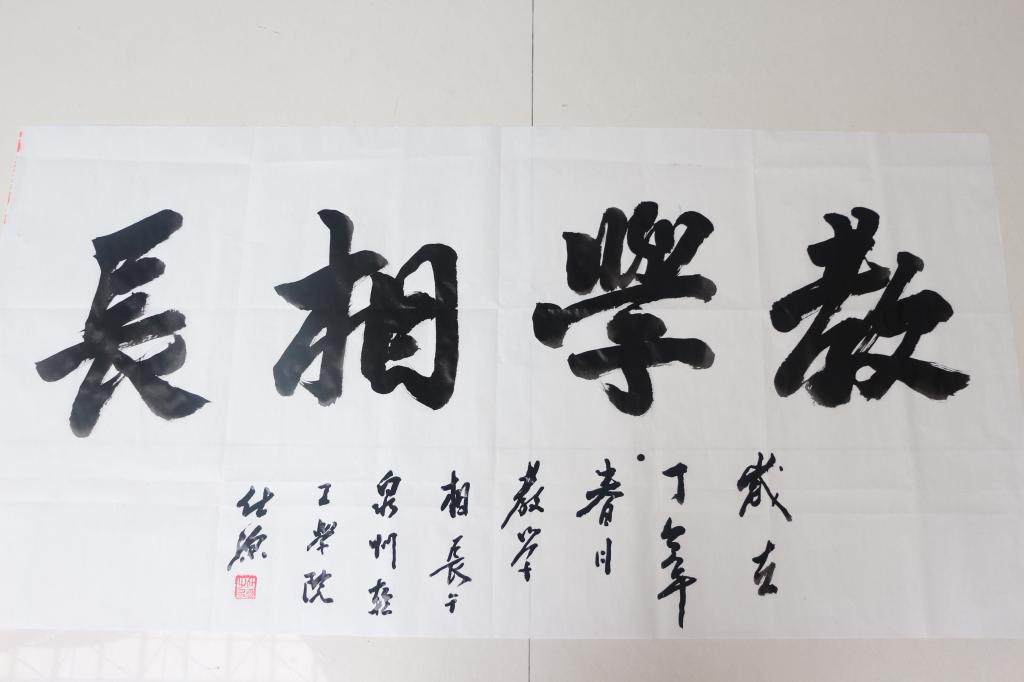 教學相長
歲在
丁酉年
春月
教學
相長于
泉州輕
工學院
仕源